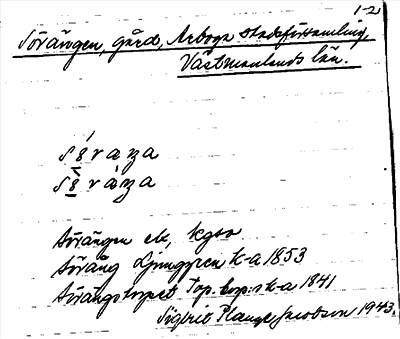 1-2
Sörängen, gård, Arboga stadsförsamling,
Västmanlands län.
Sörängen ek, kgbo
Söräng Ljunggren k-a 1853
Sörängstorpet Top. korp. ska 1841
Sigfrid Plange Jacobson 1943.